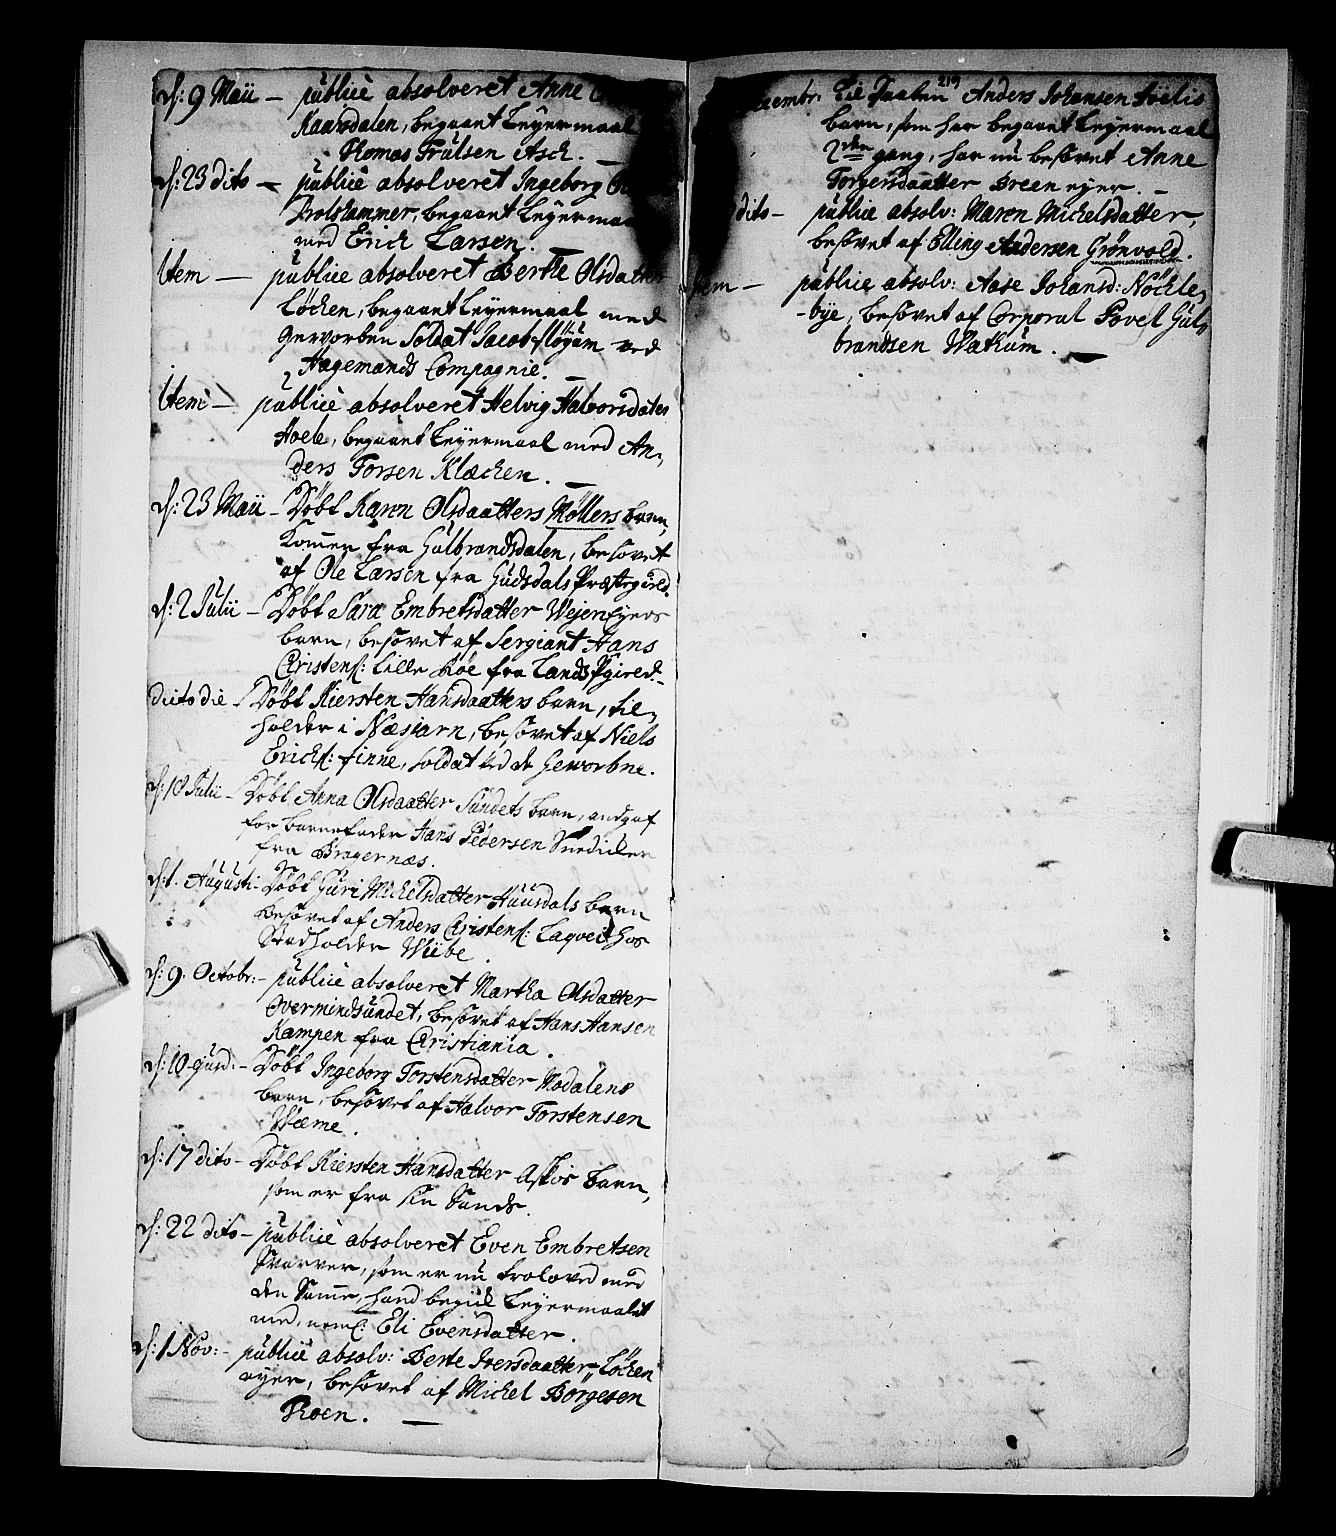 d: 9 Maii — publicè absolveret Anne
Kaarsdalen, begaaet Leyermaal
Thomas Trulsen Asch. —
d: 23 dito — publicè absolveret Ingeborg
Trolshammer, begaaet Leyermaal
med Erich Larsen. —
Item — publicè absolveret Berthe Olsdatter
Løchen, begaaet Leyermaal med
Gevorben Soldat Jacob fløgum ved
Hagemands Compagnie. —
Item — publicè absolveret Helvig Halvorsdater
Hoele, begaaet Leyermaal med An-
ders Torsen Klæchen. —
d: 23 Maii — Døbt Karen Olsdaatters Møllers barn,
Kommen fra Gulbrandsdalen, besovet
af Ole Larsen fra Gudsdals Præstegield.
d: 2 Julii — Døbt Sara Embretsdatter Wejen Eyers
barn, besovet af Sergiant Hans
Christens: Lille Røe fra Lands Pgield. —
dieto die — Døbt Kiersten Hansdaatters barn, til-
holder i Næsjarn, besovet af Niels
Erichs: finne, soldat ved de Geworbne.
d: 18 Julii — Døbt Anna Olsdaatter Sundets barn, audgaf
for barnefader Hans Pedersen Snedicker
fra Bragernæs.
d: 1. Augusti — Døbt Guri Michelsdatter Huusdals barn
besovet af Anders Christens: Laqvei hos
Stadholder Wibe.
d: 9. Octobr: — publicè absolveret Martha Olsdatter
Overmindsundet, besovet af Hans Hansen
Kampen fra Christiania.
d: 10 ejusd: — Døbt Ingeborg Torstensdatter Modalens
barn, besovet af Halvor Torstensen
Wæme.
d: 17 dito — Døbt Kiersten Hansdatter Askis barn,
som er fra sin Sands.
d: 22 dito — publicè absolveret Even Embretsen
Svarver, som er nu trolovet med
den Samme, hand begik Leyermaalet
med, neml: Eli Evensdatter.
d: 1 Nov: — publicè absolv: Berte Iversdaatter Løchen
eyer, besovet af Michel Borgesen
Thoen. —
219
embr: til Daaben Anders Johansen Søelis
barn, som har begaaet Leyermaal
2den gang, har nu besovet Anne
Torgersdaatter Breen eyer. —
dito — publicè absolv: Maren Michelsdatter,
besovet af Elling Andersen Grønvold.
Item — publicè absolv: Aase Johansd: Nøchle-
bye, besovet af Corporal Povel Gul-
brandsen Wakum. —